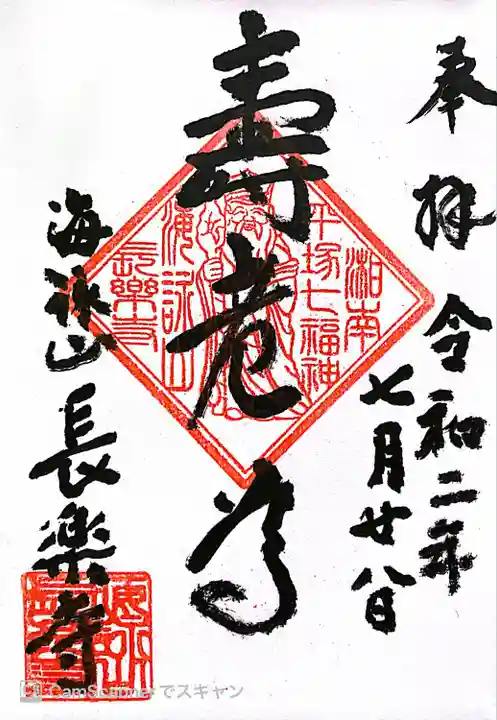 奉拝
令和二年
七月廿八日
湘南
平塚七福神
壽老尊
海詠山
長樂寺
海詠山 長楽寺
CamScannerでスキャン